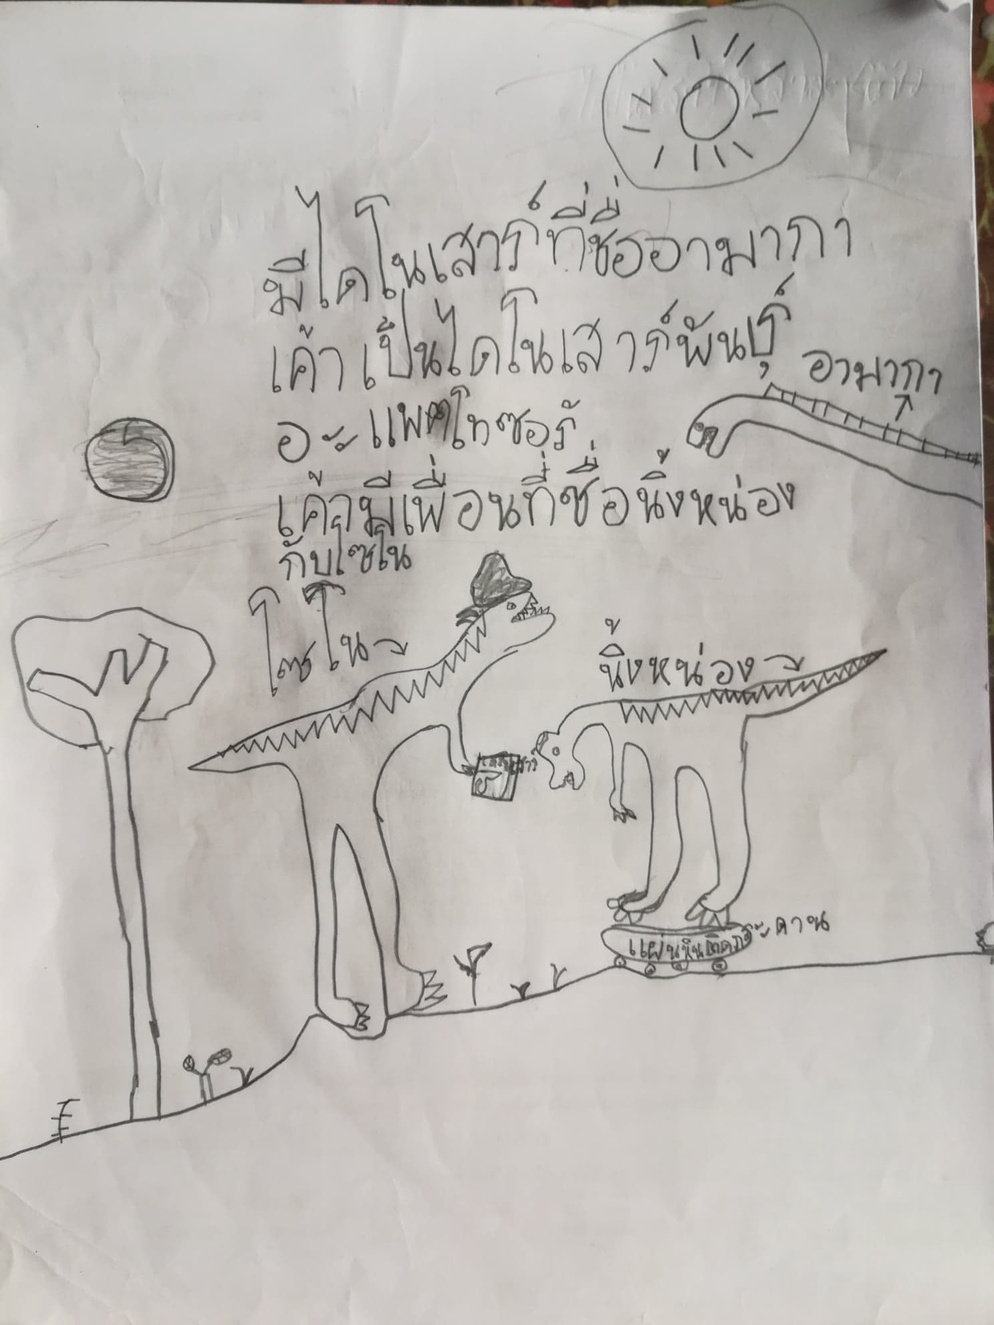 มีไดโนเสาร์ที่ชื่ออามากา
เค้าเป็นไดโนเสาร์พันธุ์
อะแพตโทซอร์
เค้ามีเพื่อนที่ชื่อนิ้งหน่อง
กับโซโน
อามากา
โซโน
นิ้งหน่อง
แผ่นหินติดกระดาน